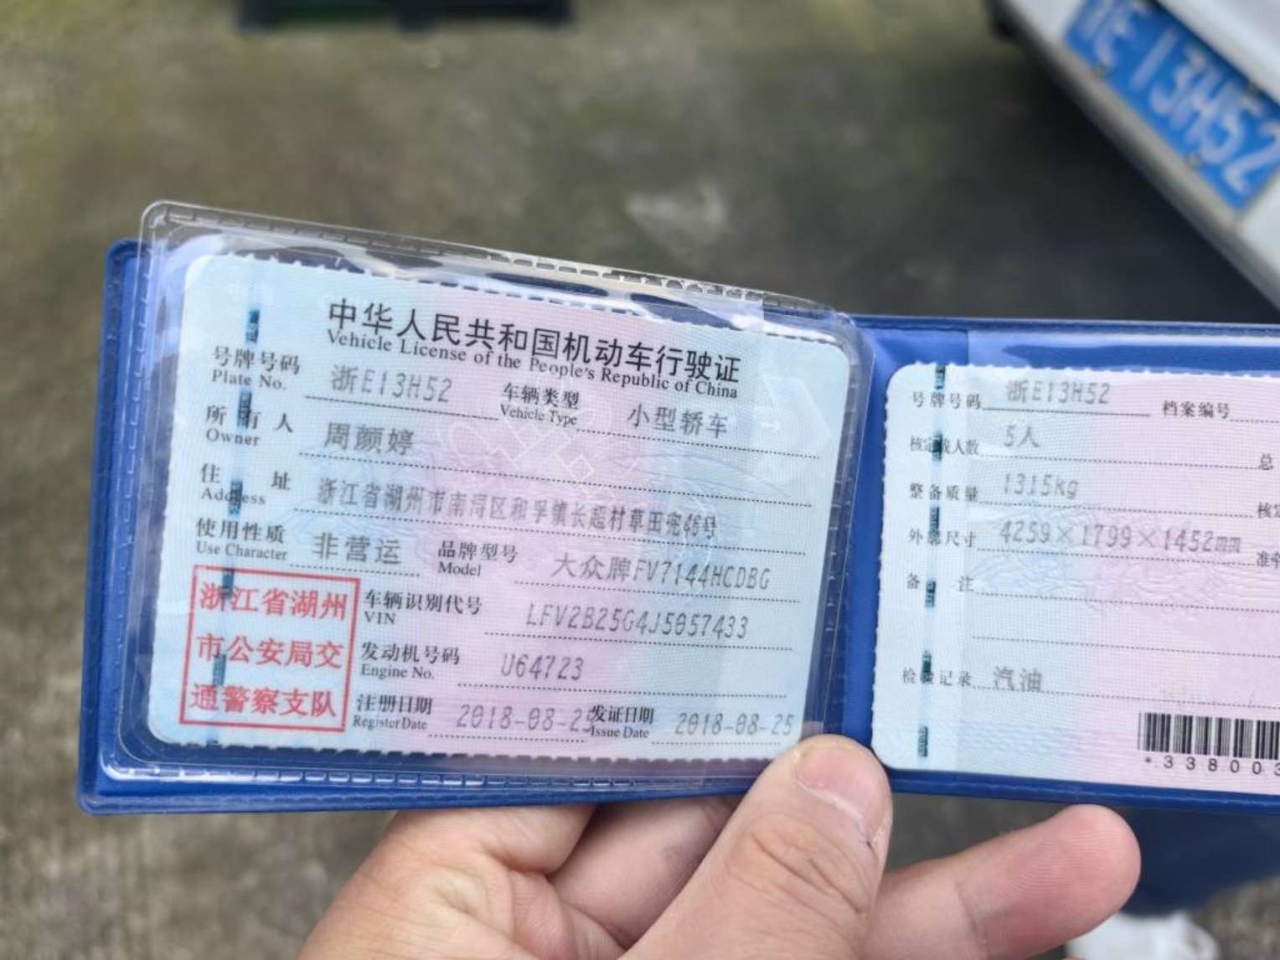 中华人民共和国机动车行驶证
Vehicle License of the People's Republic of China
号牌号码 浙E13H52 车辆类型 小型轿车
Plate No. Vehicle Type
所有人 周颜婷
Owner
住址 浙江省湖州市南浔区和孚镇长超村草田兜46号
Address
使用性质 非营运 品牌型号 大众牌FV7144HCDBG
Use Character Model
浙江省湖州
市公安局交
通警察支队
车辆识别代号 LFV2B25G4J5057433
VIN
发动机号码 U64723
Engine No.
注册日期 2018-08-25 发证日期 2018-08-25
Register Date Issue Date
号牌号码 浙E13H52 档案编号
核定载人数 5人 总
整备质量 1315kg 核定
外廓尺寸 4259×1799×1452mm 准牵
备注
检验记录 汽油
*33800
E·13H52